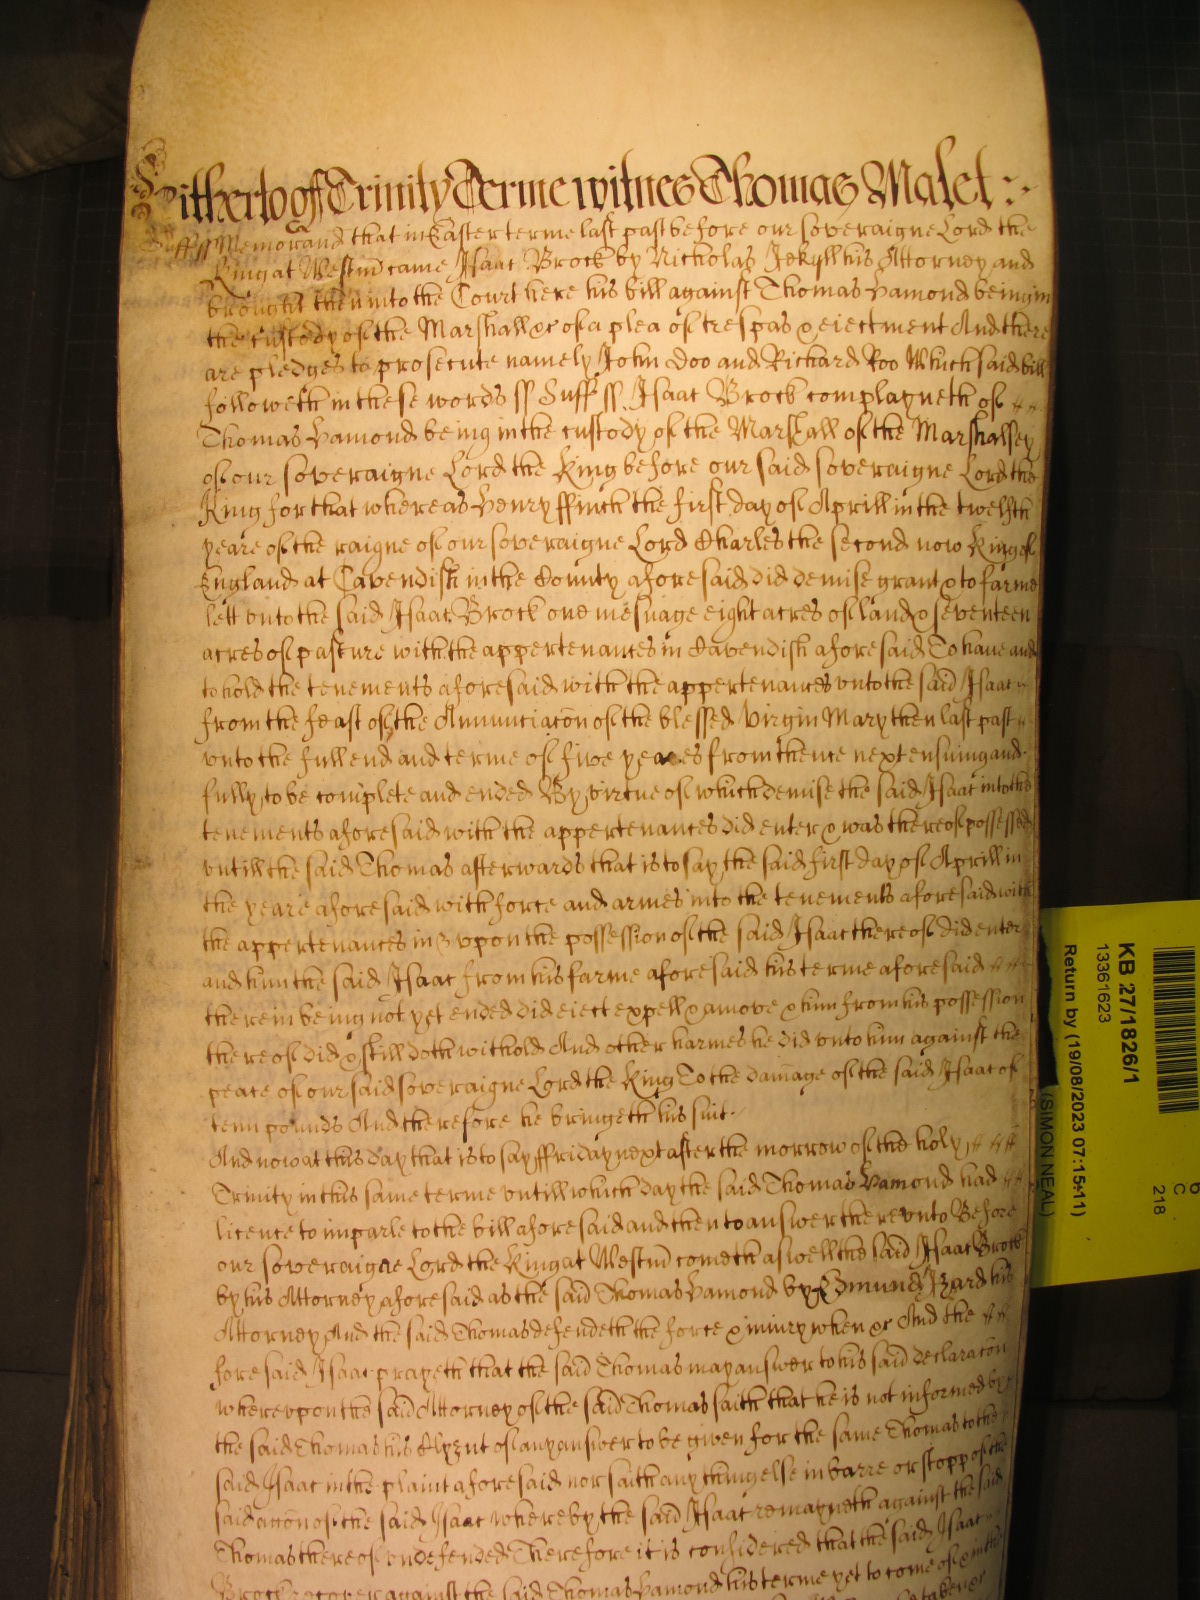 Hitherto of Trinity Terme witnes Thomas Malet :~
Suff ss Memorand that in Easter terme last past before our soveraigne Lord the
King at Westm̄ came Isaac Brock by Nicholas Jekyll his Attorney and
brought then into the Court here his bill against Thomas Hamond being in
the custody of the Marshall &c of a plea of trespas & eiectment And there
are pledges to prosecute namely John Doo and Richard Roo Which said bill
followeth in these words ss Suff ss Isaac Brock complayneth of
Thomas Hamond being in the custody of the Marshall of the Marshalsey
of our soveraigne Lord the King before our said soveraigne Lord the
King for that whereas Henry ffinch the first day of Aprill in the twelfth
yeare of the raigne of our soveraigne Lord Charles the second now King of
England at Cavendish in the County aforesaid did demise grant & to farme
lett vnto the said Isaac Brock one mesuage eight acres of land & seventeen
acres of pasture with the appertenances in Cavendish aforesaid To have and
to hold the tenements aforesaid with the appertenances vnto the said Isaac
from the feast of the Annunciac̄on of the blessed Virgin Mary then last past
vnto the full end and terme of five yeares from thence next ensuing and
fully to be complete and ended By virtue of which demise the said Isaac into the
tenements aforesaid with the appertenances did enter & was thereof possessed
vntill the said Thomas afterwards that is to say the said first day of Aprill in
the yeare aforesaid with force and armes into the tenements aforesaid with
the appertenances in & vpon the possession of the said Isaac thereof did enter
and him the said Isaac from his farme aforesaid his terme aforesaid
therein being not yet ended did eiect expell & amove & him from his possession
thereof did & still doth withold And other harmes he did vnto him against the
peace of our said soveraigne Lord the King To the damage of the said Isaac of
tenn pounds And therefore he bringeth his suit.
And now at this day that is to say ffriday next after the morrow of the holy
Trinity in this same terme vntill which day the said Thomas Hamond had
licence to imparle to the bill aforesaid and then to answer therevnto Before
our soveraigne Lord the King at Westm̄ cometh aswell the said Isaac Brock
by his Attorney aforesaid as the said Thomas Hamond by Edmund Izard his
Attorney And the said Thomas defendeth the force & iniury when &c And the
foresaid Isaac prayeth that the said Thomas may answer to his said declarac̄on
wherevpon the said Attorney of the said Thomas saith that he is not informed by
the said Thomas his Clyent of any answer to be given for the same Thomas to the
said Isaac in the plaint aforesaid nor saith any thing else in barre or stopp of the
said acc̄on of the said Isaac whereby the said Isaac remayneth against the said
Thomas thereof vndefended Therefore it is considered that the said Isaac
Brock recover against the said Thomas Hamond his terme yet to come of & in the
KB 27/1826/1
13361623
Return by (19/08/2023 07:15:11)
(SIMON NEAL)
C
218